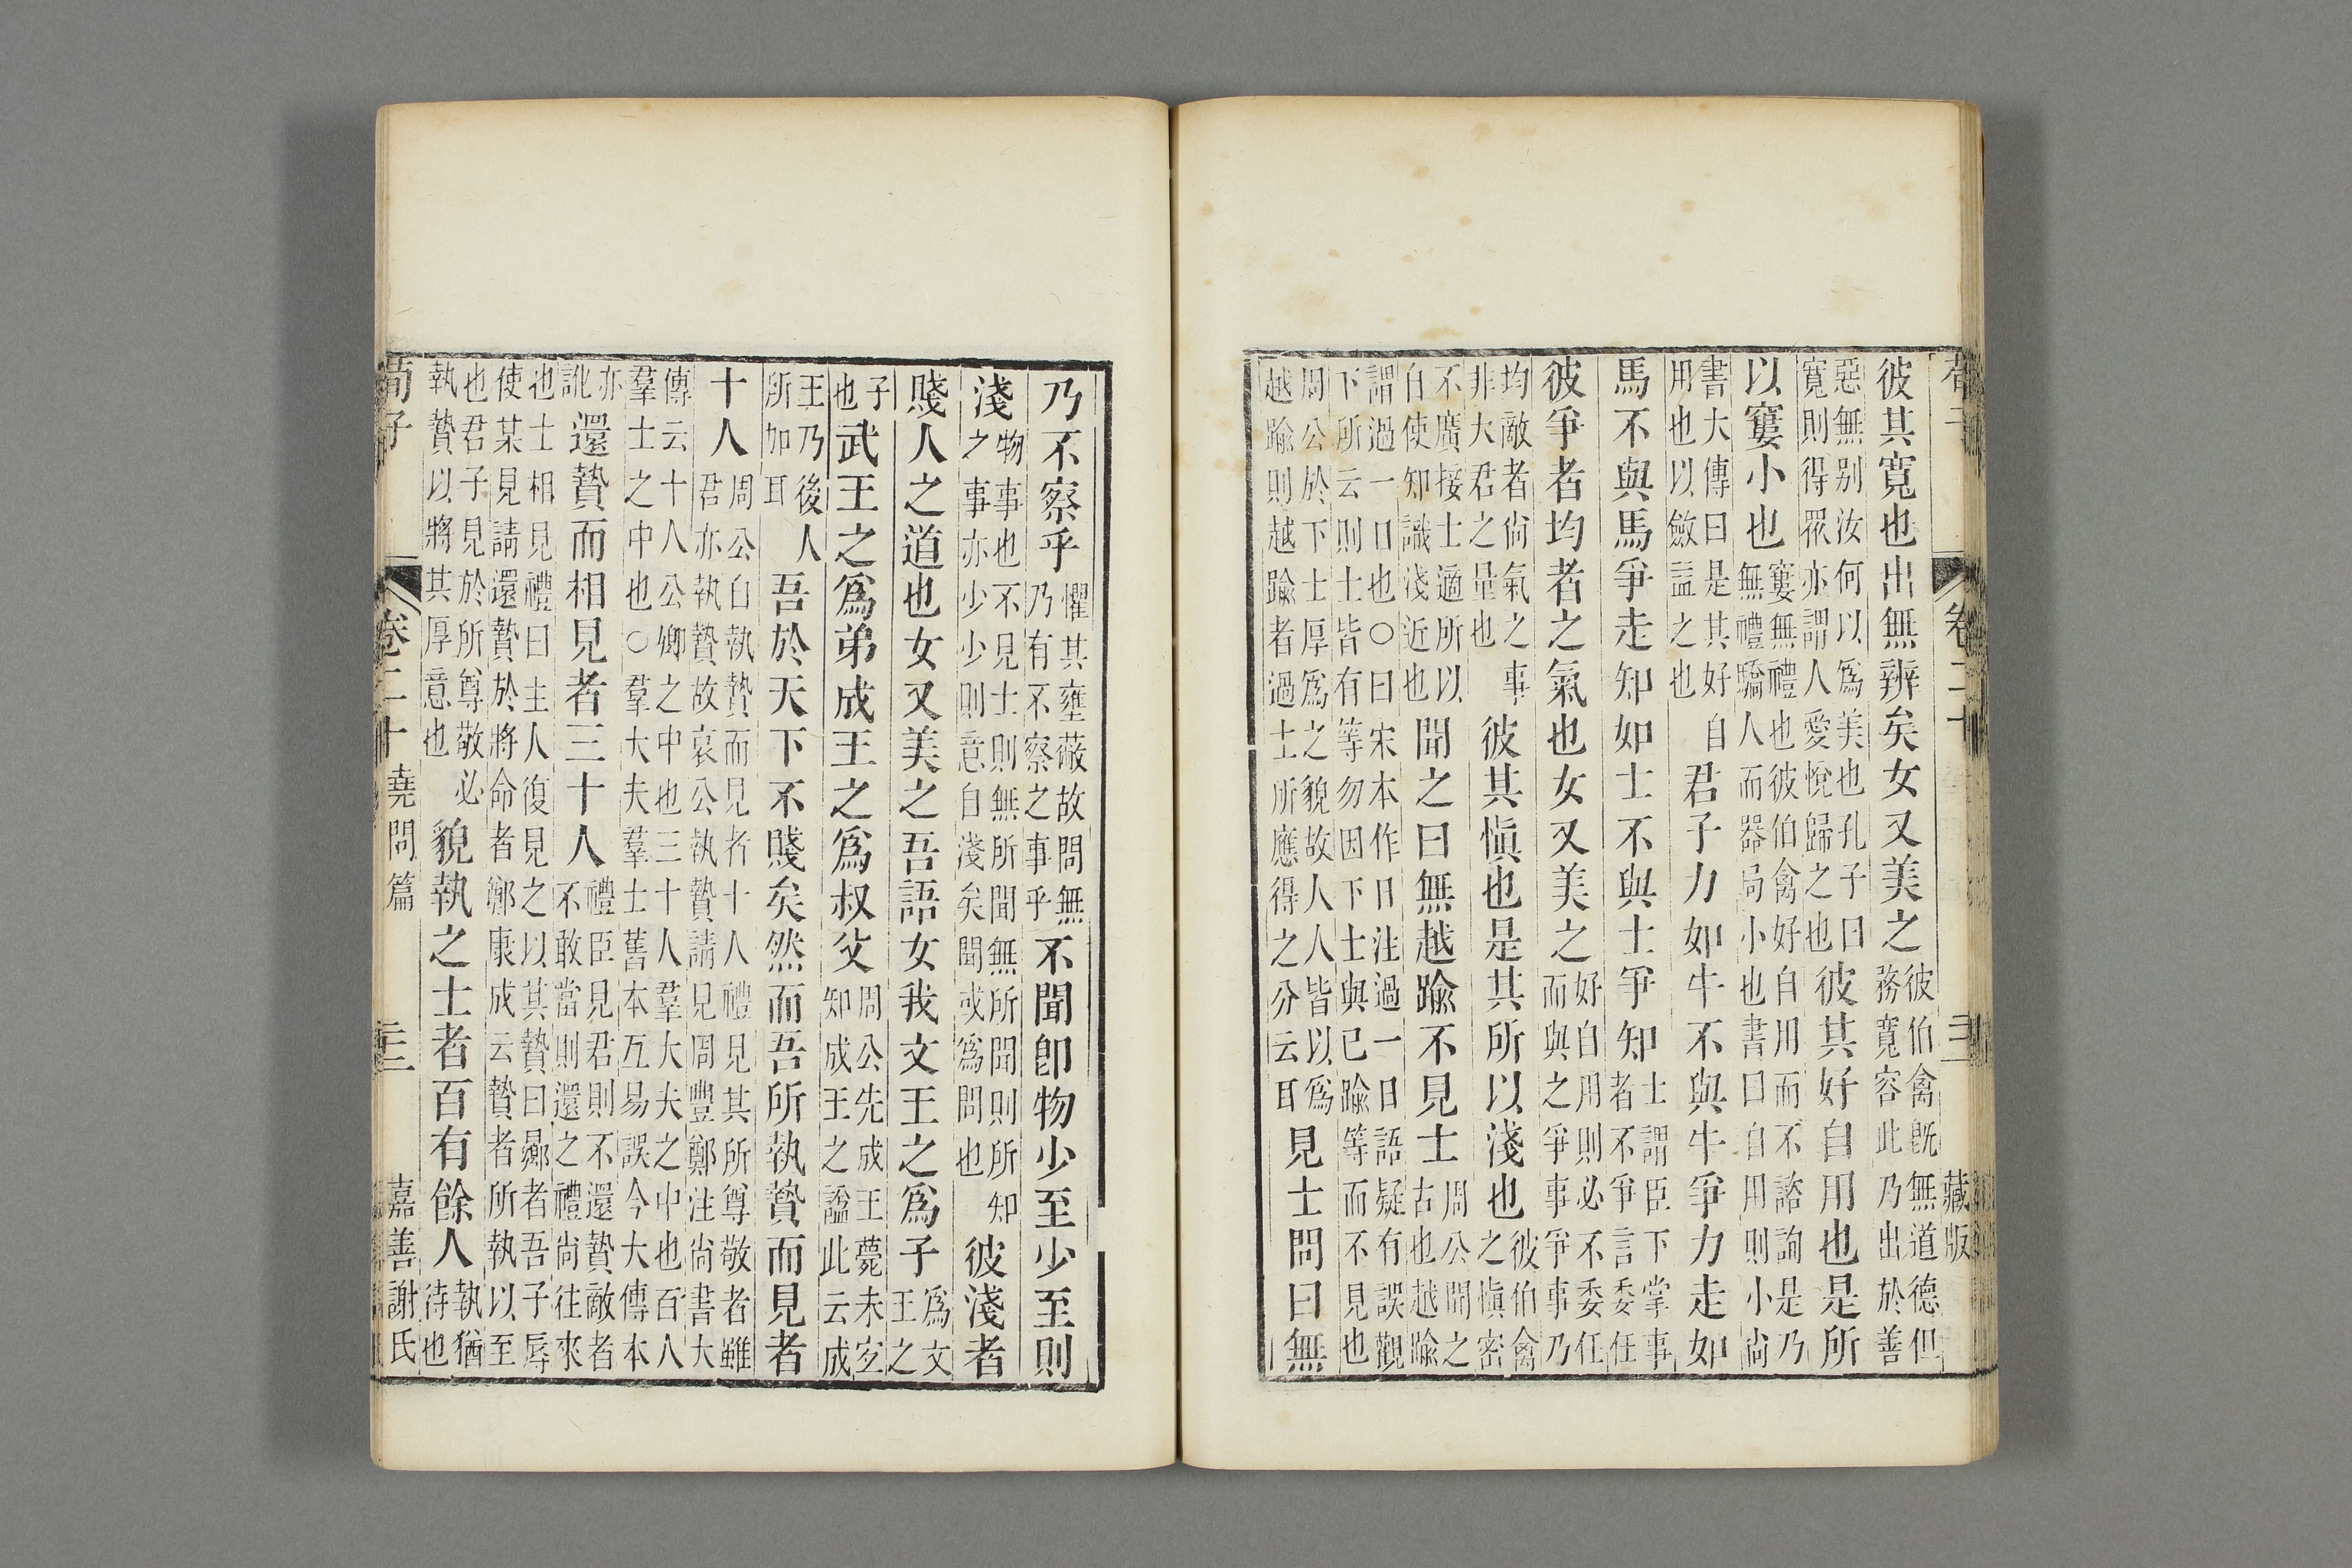 彼其寬也出無辨矣女又美之彼伯禽旣無道德但務寬容此乃出於善
惡無别汝何以爲美也孔子曰寬則得衆亦謂人愛悅歸之也彼其好自用也是所
以窶小也窶無禮也彼伯禽好自用而不諮詢是乃無禮驕人而器局小也書曰自用則小尙
書大傳曰是其好自用也以斂益之也君子力如牛不與牛爭力走如
馬不與馬爭走知如士不與士爭知士謂臣下掌事者不爭言委任
彼爭者均者之氣也女又美之好自用則必不委任而與之爭事爭事乃
均敵者尙氣之事非大君之量也彼其愼也是其所以淺也彼伯禽之愼密
不廣接士適所以自使知識淺近也聞之曰無越踰不見士周公聞之古也越踰
謂過一日也○曰宋本作日注過一日語疑有誤觀下所云則士皆有等勿因下士與已踰等而不見也
周公於下士厚爲之貌故人人皆以爲越踰則越踰者過士所應得之分云耳見士問曰無
乃不察乎懼其壅蔽故問無乃有不察之事乎不聞卽物少至少至則
淺物事也不見士則無所聞無所聞則所知之事亦少少則意自淺矣聞或爲問也彼淺者
賤人之道也女又美之吾語女我文王之爲子爲文王之
子也武王之爲弟成王之爲叔父周公先成王薨未宐知成王之謚此云成
王乃後人所加耳吾於天下不賤矣然而吾所執贄而見者
十人周公自執贄而見者十人禮見其所尊敬者雖君亦執贄故哀公執贄請見周豐鄭注尙書大
傳云十人公卿之中也三十人羣大夫之中也百八羣士之中也○羣大夫羣士舊本互易誤今大傳本
亦訛還贄而相見者三十人禮臣見君則不還贄敵者不敢當則還之禮尙往來
也士相見禮曰主人復見之以其贄曰曏者吾子辱使某見請還贄於將命者鄭康成云贄者所執以至
也君子見於所尊敬必執贄以將其厚意也貌執之士者百有餘人執猶待也
荀子
卷二十
堯問篇
嘉善謝氏
藏版